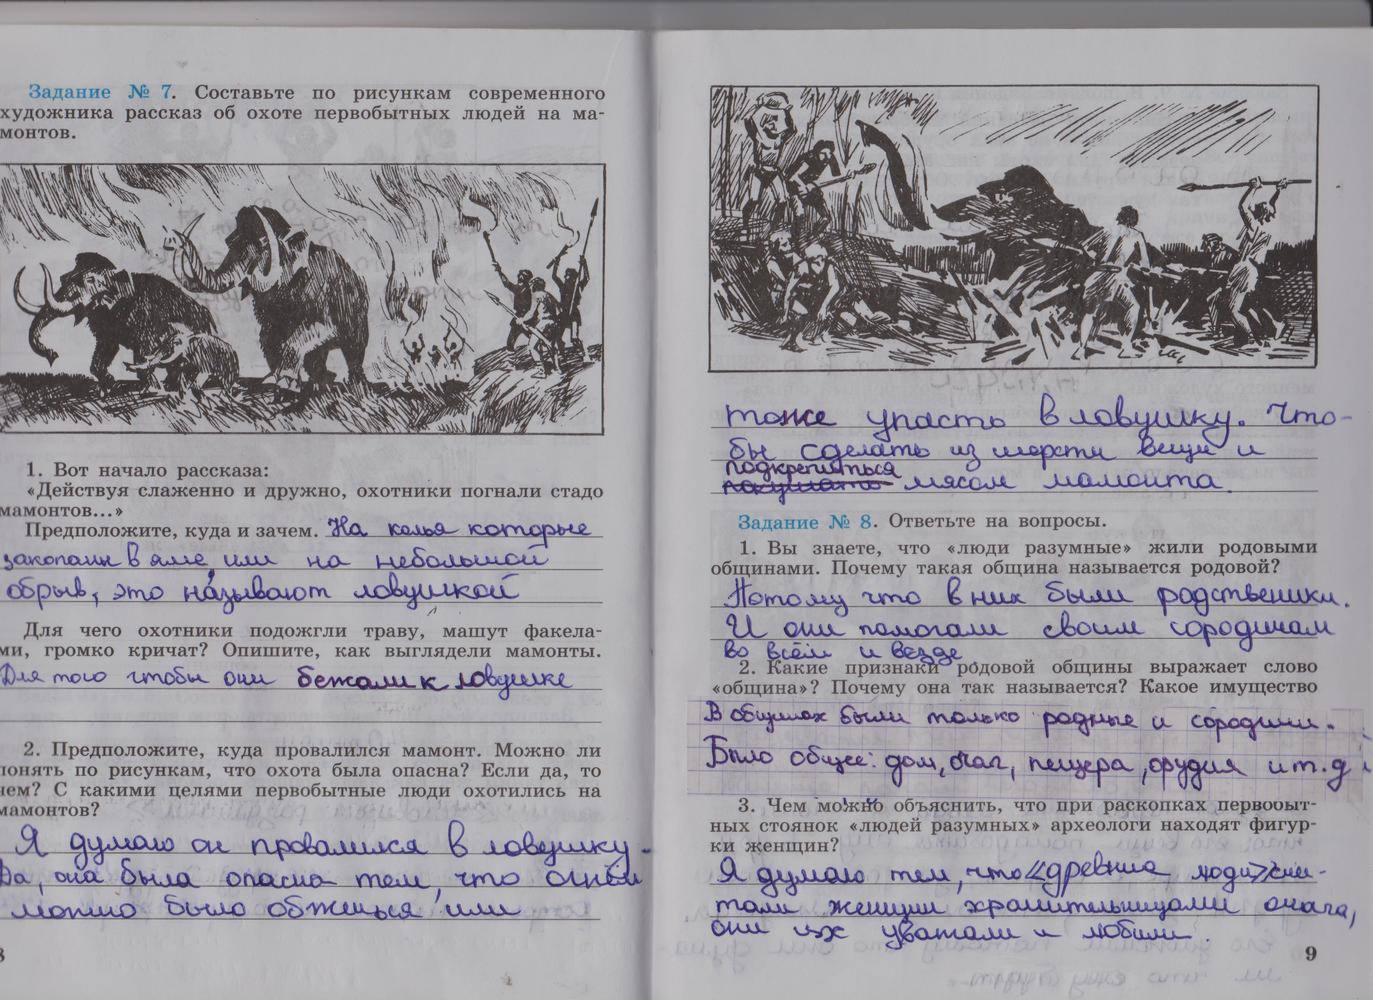 Задание № 7. Составьте по рисункам современного
художника рассказ об охоте первобытных людей на ма-
монтов.
1. Вот начало рассказа:
«Действуя слаженно и дружно, охотники погнали стадо
мамонтов...»
Предположите, куда и зачем. На колья которые
закопаны в яме, или на небольшой
обрыв, это называют ловушкой
Для чего охотники подожгли траву, машут факела-
ми, громко кричат? Опишите, как выглядели мамонты.
Для того чтобы они бежали к ловушке
2. Предположите, куда провалился мамонт. Можно ли
понять по рисункам, что охота была опасна? Если да, то
чем? С какими целями первобытные люди охотились на
мамонтов?
Я думаю он провалился в ловушку.
Да, она была опасна тем, что огнём
можно было обжецься или
8
тоже упасть в ловушку. Что-
бы сделать из шерсти вещи и
подкрепиться
покушать мясом мамонта.
Задание № 8. Ответьте на вопросы.
1. Вы знаете, что «люди разумные» жили родовыми
общинами. Почему такая община называется родовой?
Потому что в них были родственики.
И они помогали своим сородичам
во всём и везде
2. Какие признаки родовой общины выражает слово
«община»? Почему она так называется? Какое имущество
В общинах были только родные и сородичи.
Было общее: дом, очаг, пещера, орудия и т.д
3. Чем можно объяснить, что при раскопках первобыт-
ных стоянок «людей разумных» археологи находят фигур-
ки женщин?
Я думаю тем, что «древние люди» счи-
тали женщин хранительницами очага,
они их уважали и любили.
9